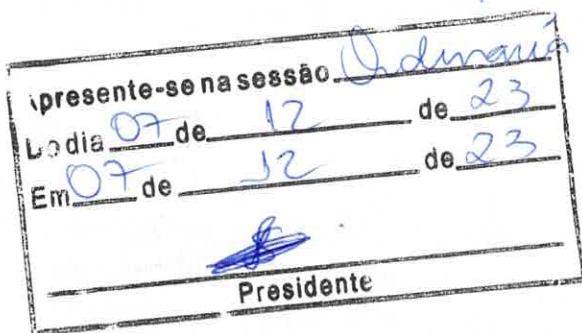 Apresente-se na sessão Ordinaria
Do dia 07 de 12 de 23
Em 07 de 12 de 23
Presidente